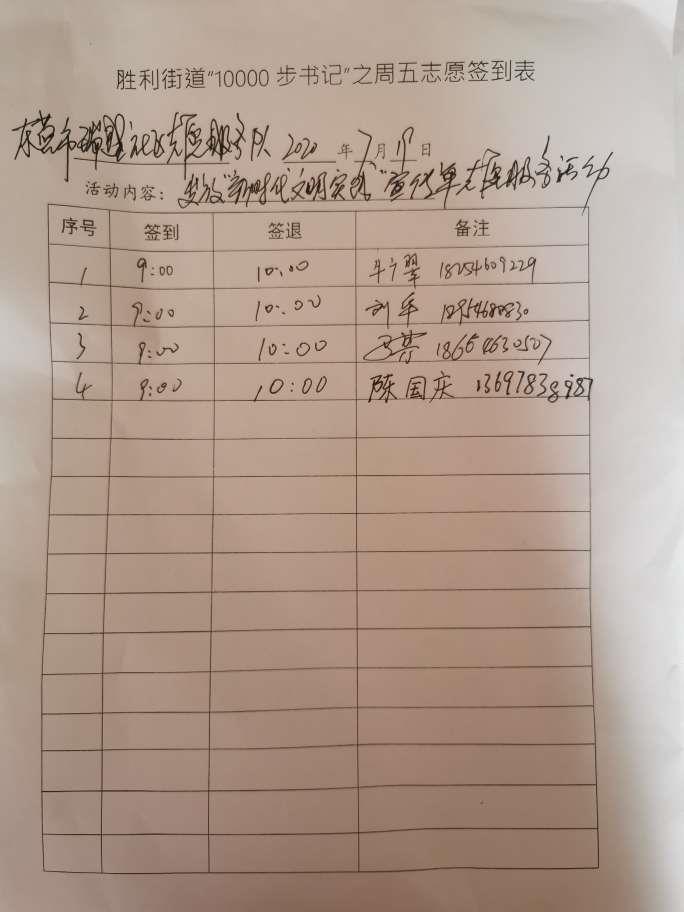 胜利街道“10000 步书记”之周五志愿签到表
东营市 社区志愿服务队 2020 年 7 月 日
活动内容：发放“新时代文明实践”宣传单志愿服务活动
序号 签到 签退 备注
1 9:00 10:00 18254609229
2 9:00 10:00 刘军
3 9:00 10:00 18654630507
4 9:00 10:00 陈国庆 13697838987